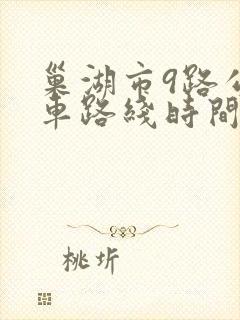 巢湖市9路公
車路綫時間
桃圻